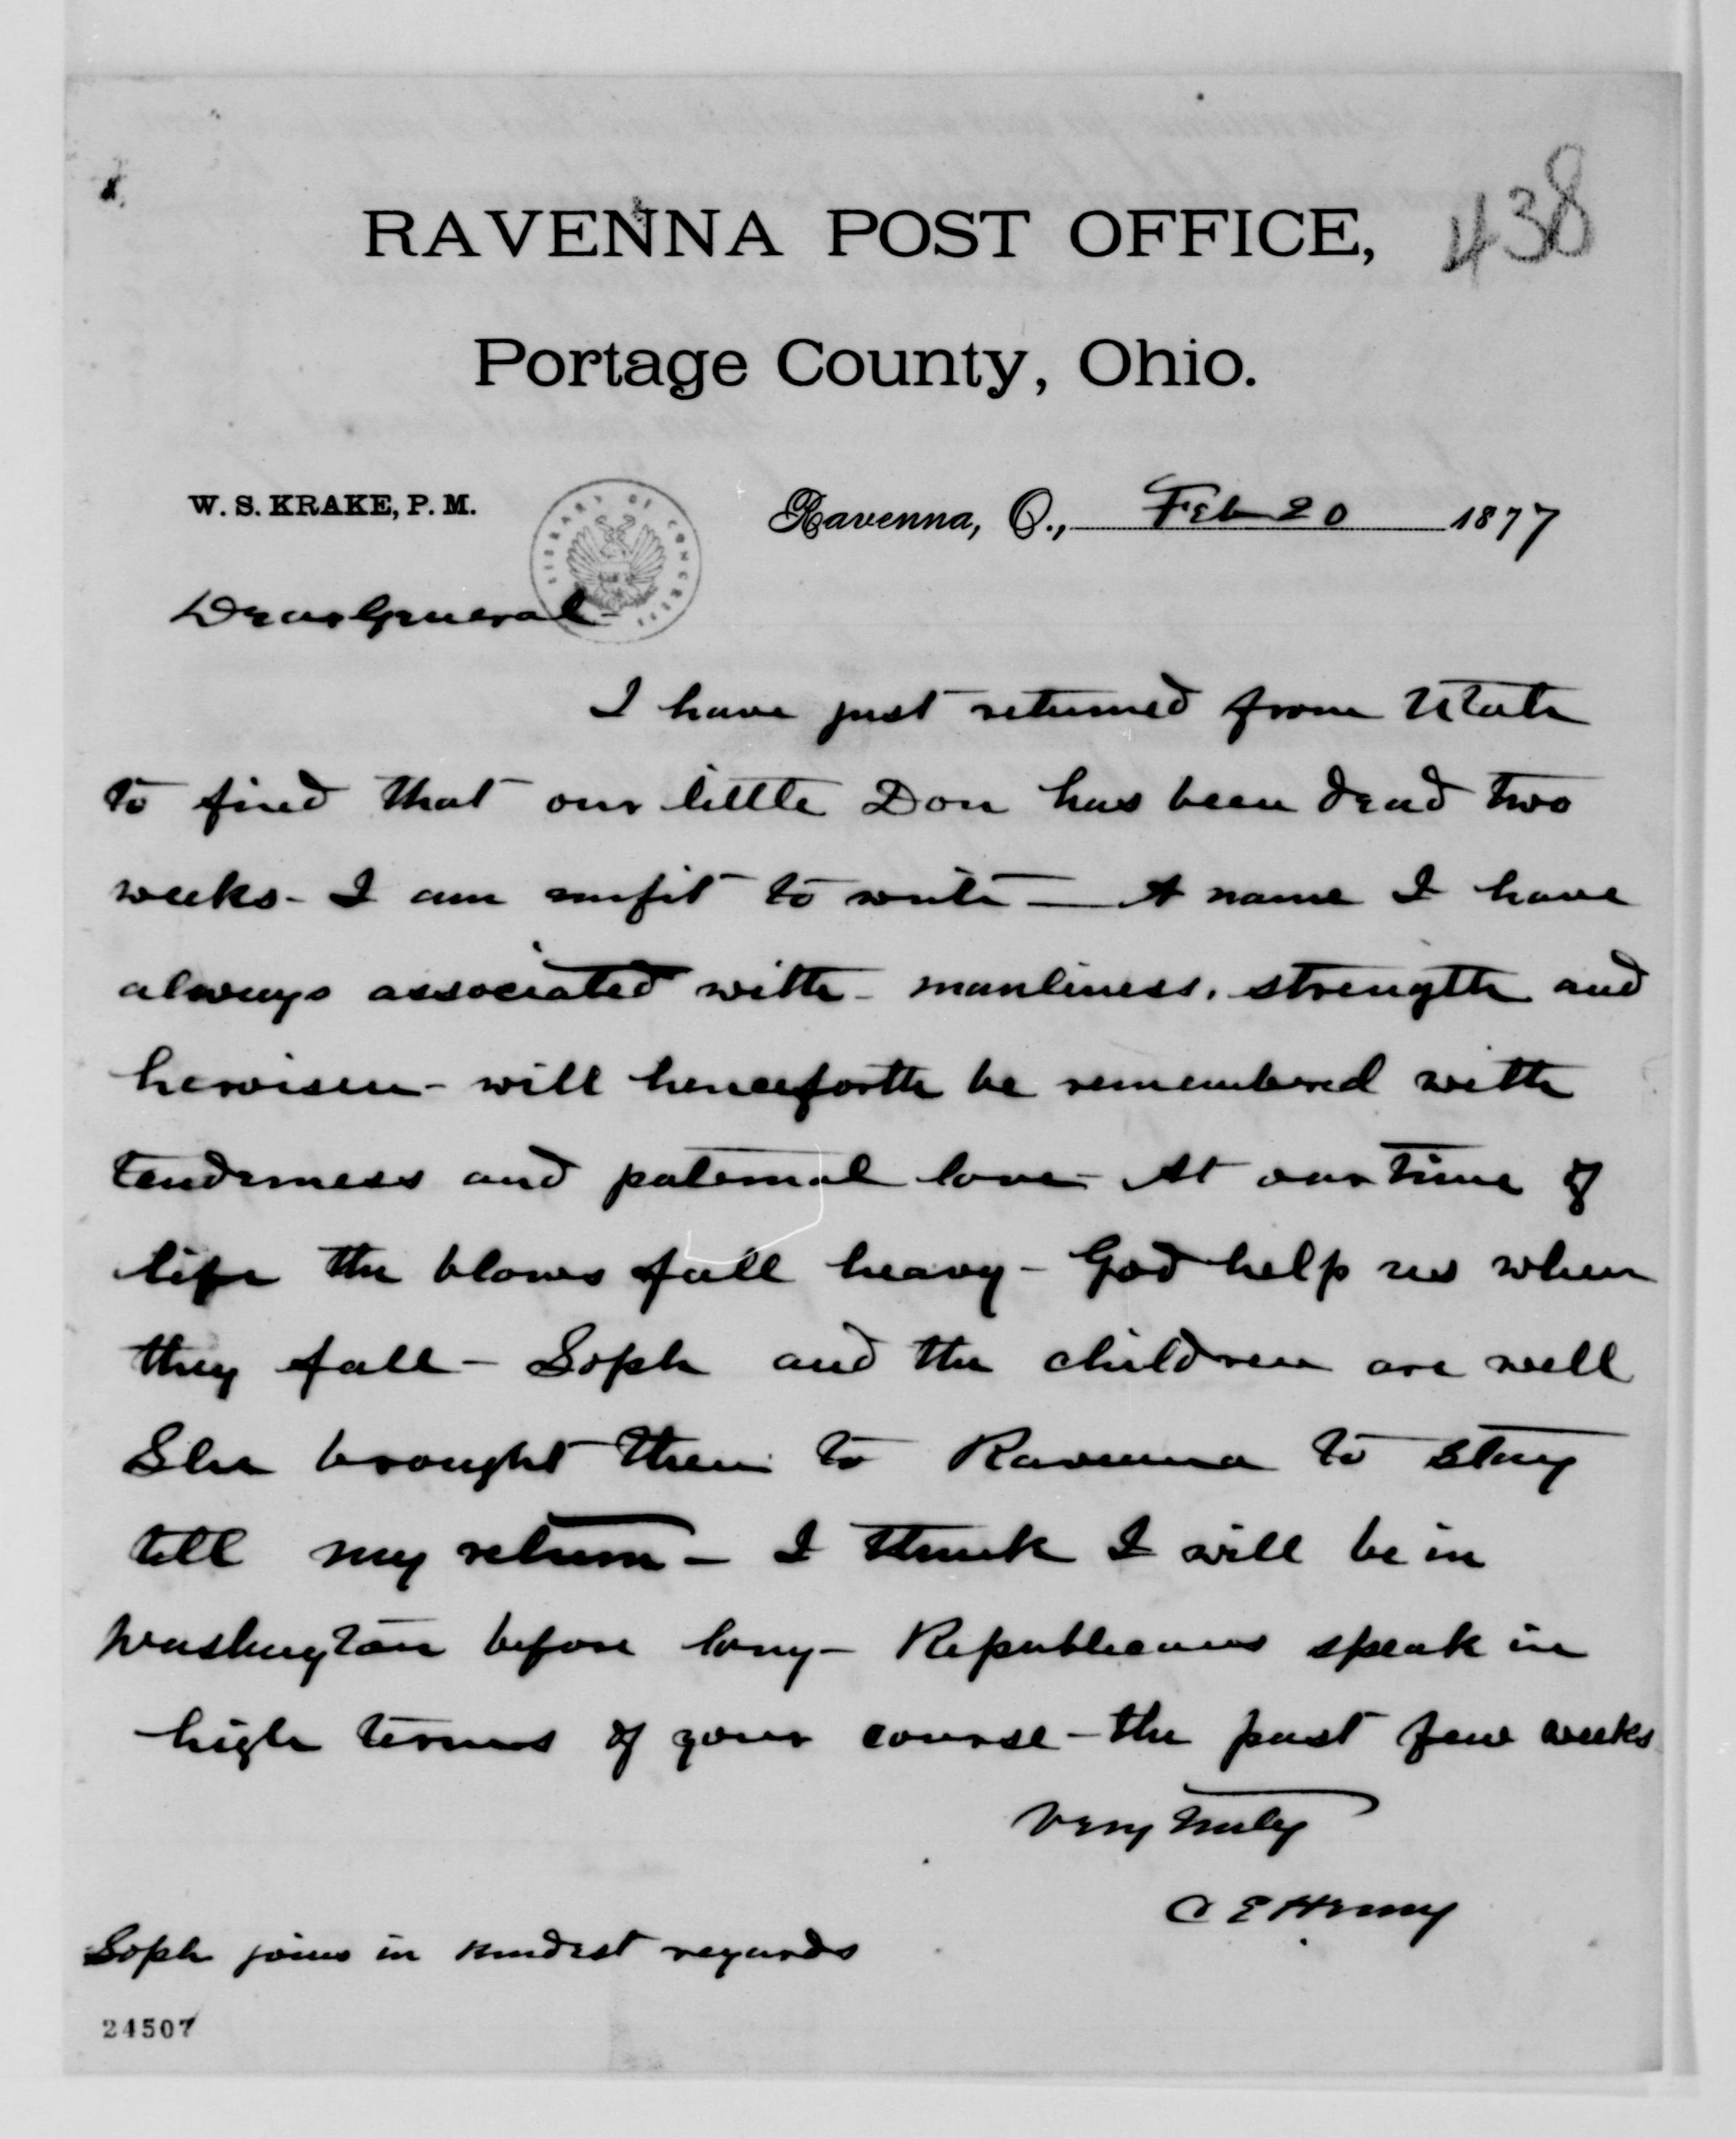 438
RAVENNA POST OFFICE,
Portage County, Ohio.
W. S. KRAKE, P. M.
LIBRARY OF CONGRESS
Ravenna, O., Feb 20 1877
Dear General-
I have just returned from Utah
to find that our little Don has been dead two
weeks- I am unfit to write — A name I have
always associated with- manliness, strength and
heroism- will henceforth be remembered with
tenderness and paternal love- At our time of
life the blows fall heavy- God help us when
they fall- Soph and the children are well
She brought them to Ravenna to stay
till my return- I think I will be in
Washington before long- Republicans speak in
high terms of your course- the past few weeks
Very truly
C E Henry
Soph joins in kindest regards
24507